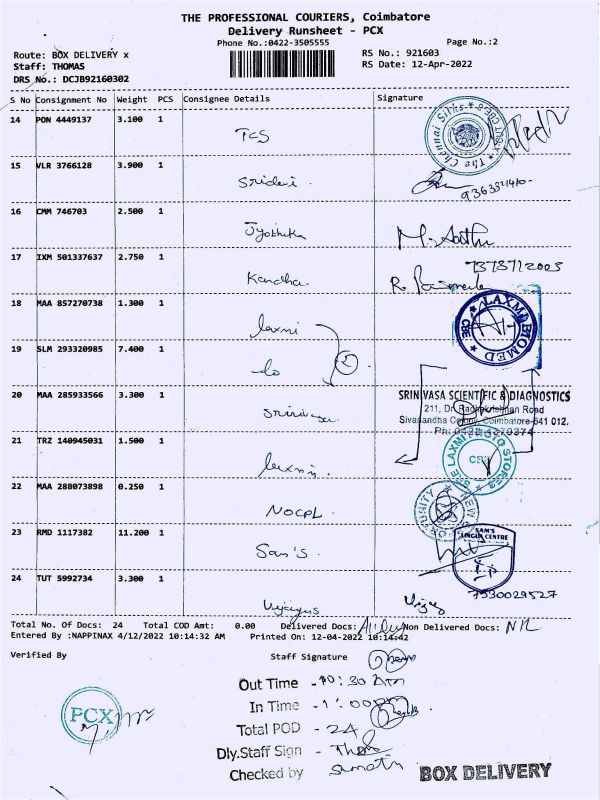 THE PROFESSIONAL COURIERS, Coimbatore
Delivery Runsheet - PCX
Phone No.:0422-3505555
Page No.:2
Route: BOX DELIVERY x
RS No.: 921603
Staff: THOMAS
RS Date: 12-Apr-2022
DRS No.: DCJB92160302
S No Consignment No Weight PCS Consignee Details Signature
14 PON 4449137 3.100 1
TCS
The Chennai Silks
15 VLR 3766128 3.900 1
Sridevi.
16 CMM 746703 2.500 1
Jyothika
17 IXM 501337637 2.750 1
Kandha
7373712003
18 MAA 857270738 1.300 1
laxmi
LAXMI BIOMED
CBE
19 SLM 293320985 7.400 1
do
2
20 MAA 285933566 3.300 1
Srinivasa
SRINIVASA SCIENTIFIC & DIAGNOSTICS
211, Dr. Radhakrishnan Road
Sivanandha Colony, Coimbatore-641 012.
21 TRZ 140945031 1.500 1
laxmi.
SREE LAXMI PHOTO STORES
22 MAA 288073898 0.250 1
NOCPL
23 RMD 1117382 11.200 1
Sam's.
SAM'S
LINGUA CENTRE
24 TUT 5992734 3.300 1
7530029527
Total No. Of Docs: 24 Total COD Amt: 0.00 Delivered Docs: Non Delivered Docs: NIL
Entered By :NAPPINAX 4/12/2022 10:14:32 AM Printed On: 12-04-2022 10:14:42
Verified By
Staff Signature
Out Time - 10:30 Am
In Time - 1:00 pm
PCX
Total POD - 24
Dly.Staff Sign -
Checked by
BOX DELIVERY